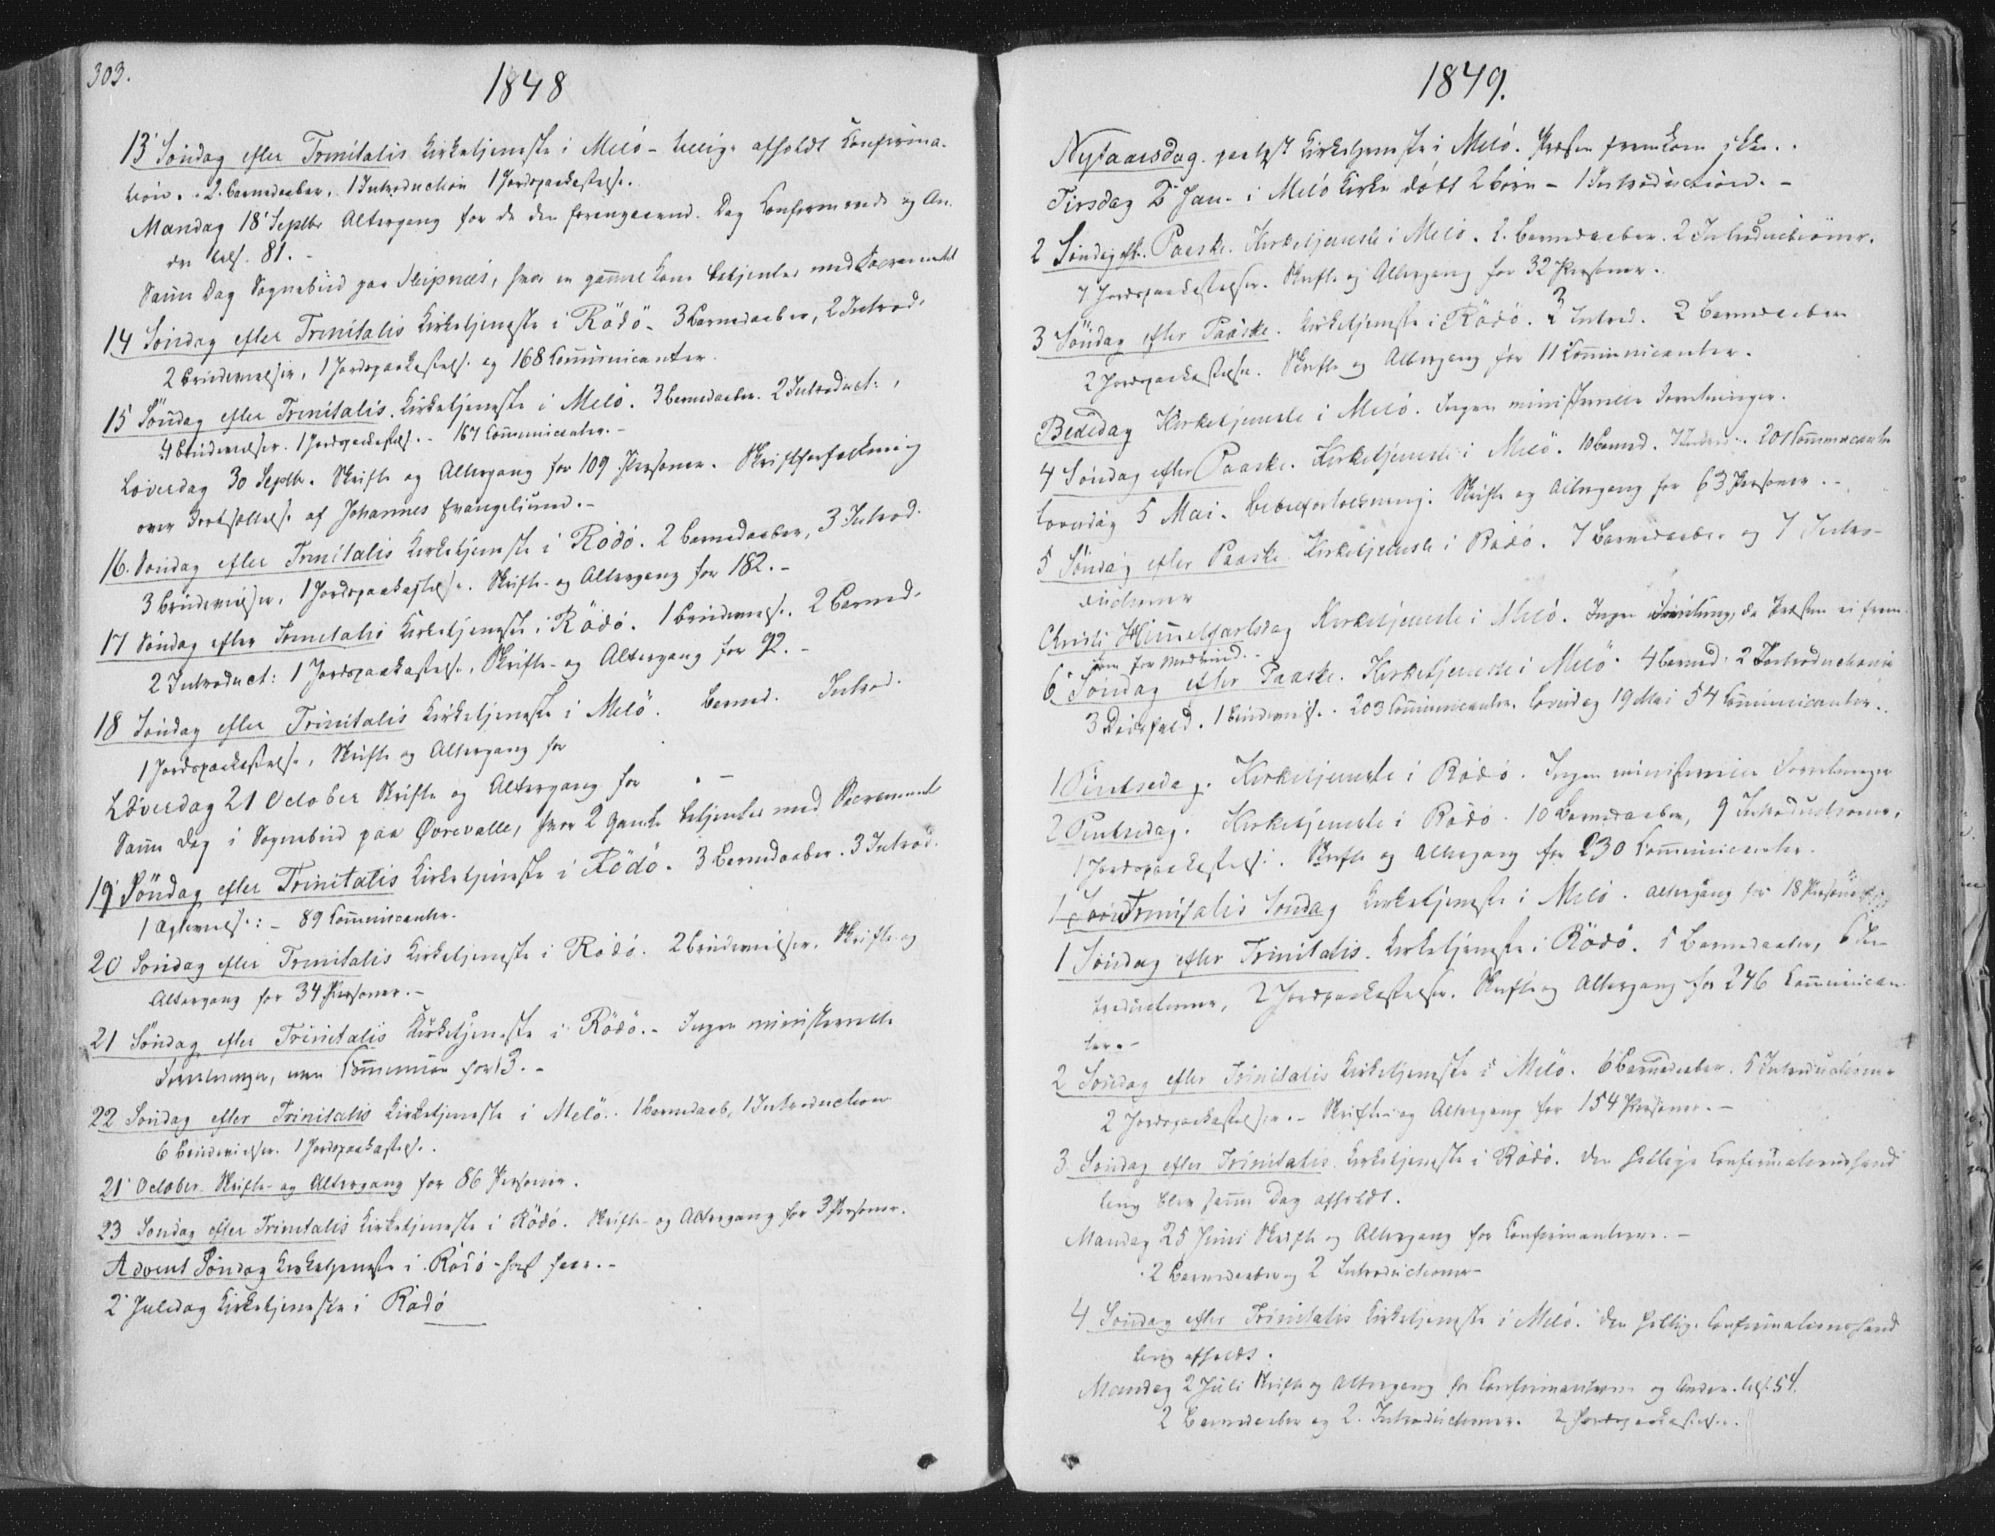 303.
1848
13' Søndag efter Trinitatis Kirketjeneste i Melö - hellige afholdt Confirma-
tion. - 2 Barnedaaber, 1 Introduction 1 Jordpaakastelse.
Mandag 18' Septbr Altergang for de den foregaaende Dag Confirmerede og An-
dre 81. -
Samme Dag Sognebud paa Skipnæs, hvor en gammel Kone betjentes med Sacramentet
14 Søndag efter Trinitatis Kirketjeneste i Rödö - 3 Barnedaaber, 2 Introd.
2 Brudevielser, 1 Jordpaakastelse og 168 Communicanter.
15 Søndag efter Trinitatis. Kirketjeneste i Melö. 3 Barnedaaber. 2 Introduct:,
4 Brudevielser. 1 Jordpaakastels. - 167 Communicanter. -
Løverdag 30 Septbr. Skrifte og Altergang for 109 Personer. Skriftforklaring
over Fortsættelse af Johannes Evangelium. -
16. Søndag efter Trinitatis Kirketjeneste i Rödö. 2 Barnedaaber, 3 Introd.
3 Brudevielser, 1 Jordpaakastelse. Skrifte- og Altergang for 182. -
17 Søndag efter Trinitatis Kirketjeneste i Rödö. 1 Brudevielse. 2 Barned.
2 Introduct: 1 Jordpaakastelse, Skrifte- og Altergang for 92. -
18 Søndag efter Trinitatis Kirketjeneste i Melö. Barned. Introd.
1 Jordpaakastelse, Skrifte og Altergang for
Løverdag 21 October Skrifte og Altergang for . -
Samme Dag i Sognebud paa Øvrevalle, hvor 2 Gamle betjentes med Sacramentet
19' Søndag efter Trinitatis Kirketjeneste i Rödö. 3 Barnedaaber. 3 Introd.
1 Ægtevielse: - 89 Communicanter.
20 Søndag efter Trinitatis Kirketjeneste i Rödö. 2 Brudevielser. Skrifte og
Altergang for 34 Personer. -
21 Søndag efter Trinitatis Kirketjeneste i Rödö. - Ingen ministerielle
Forretninger, men Communion for 13. -
22 Søndag efter Trinitatis Kirketjeneste i Melö. 1 Barnedaab, 1 Introduction
6 Brudevielser. 1 Jordpaakastelse.
21' October Skrifte- og Altergang for 86 Personer.
23 Søndag efter Trinitatis Kirketjeneste i Rödö. Skrifte- og Altergang for 3 Personer.
Advent Søndag Kirketjeneste i Rödö
2' Juledag Kirketjeneste i Rödö
1849.
Nytaarsdag. Kirketjeneste i Melö. Præsten fremkom ikke.
Tirsdag 2' Jan. i Melö Kirke døbt 2 Börn - 1 Introduction. -
2 Søndag eft. Paaske. Kirketjeneste i Melö. 2. Barnedaaber. 2 Introductioner.
7 Jordpaakastelser. Skrifte og Altergang for 32 Personer.
3 Søndag efter Paaske. Kirketjeneste i Rödö. 3 Introd. 2 Barnedaaber
2 Jordpaakastelse. Skrifte og Altergang for 11 Communicanter.
Bededag Kirketjeneste i Melö. Ingen ministerielle Forretninger.
4 Søndag efter Paaske. Kirketjeneste i Melö. 10 Barned. 7 Introd. 201 Communicanter
Løverdag 5 Mai. Bibelforlæsning. Skrifte og Altergang for 63 Personer. -
5 Søndag efter Paaske Kirketjeneste i Rödö. 7 Barnedaaber og 7 Intro-
ductioner
Christi Himmelfartsdag Kirketjeneste i Melö. Ingen Forretning, da Præsten ei frem-
kom for Modvind. -
6' Søndag efter Paaske. Kirketjeneste i Melö. 4 Barned. 2 Introductioner
3 Dødsfald. 1 Brudevielse. 203 Communicanter. Løverdag 19 Mai 54 Communicanter.
1 Pintsedag. Kirketjeneste i Rödö. Ingen ministerielle Forretninger
2 Pintsedag. Kirketjeneste i Rödö. 10 Barnedaaber, 9 Introductioner,
1 Jordpaakastelse. Skrifte og Altergang for 230 Communicanter.
Trinitatis Søndag Kirketjeneste i Melö. Altergang for 18 Personer
1 Søndag efter Trinitatis. Kirketjeneste i Rödö. 5 Barnedaaber, 6 In-
troductioner, 2 Jordpaakastelser. Skrifte og Altergang for 246 Communican-
ter. -
2 Søndag efter Trinitatis Kirketjeneste i Melö. 6 Barnedaaber. 5 Introductioner
2 Jordpaakastelser. - Skrifte og Altergang for 154 Personer. -
3. Søndag efter Trinitatis. Kirketjeneste i Rödö. Den hellige Confirmationshand
ling blev samme Dag afholdt.
Mandag 25 Juni Skrifte og Altergang for Confirmanterne. -
2 Barnedaaber og 2 Introductioner -
4 Søndag efter Trinitatis Kirketjeneste i Melö. Den hellige Confirmationshand
ling afholdt.
Mandag 2 Juli Skrifte og Altergang for Confirmanterne og Andre 54.
2 Barnedaaber og 2. Introductioner. 2 Jordpaakastelse.